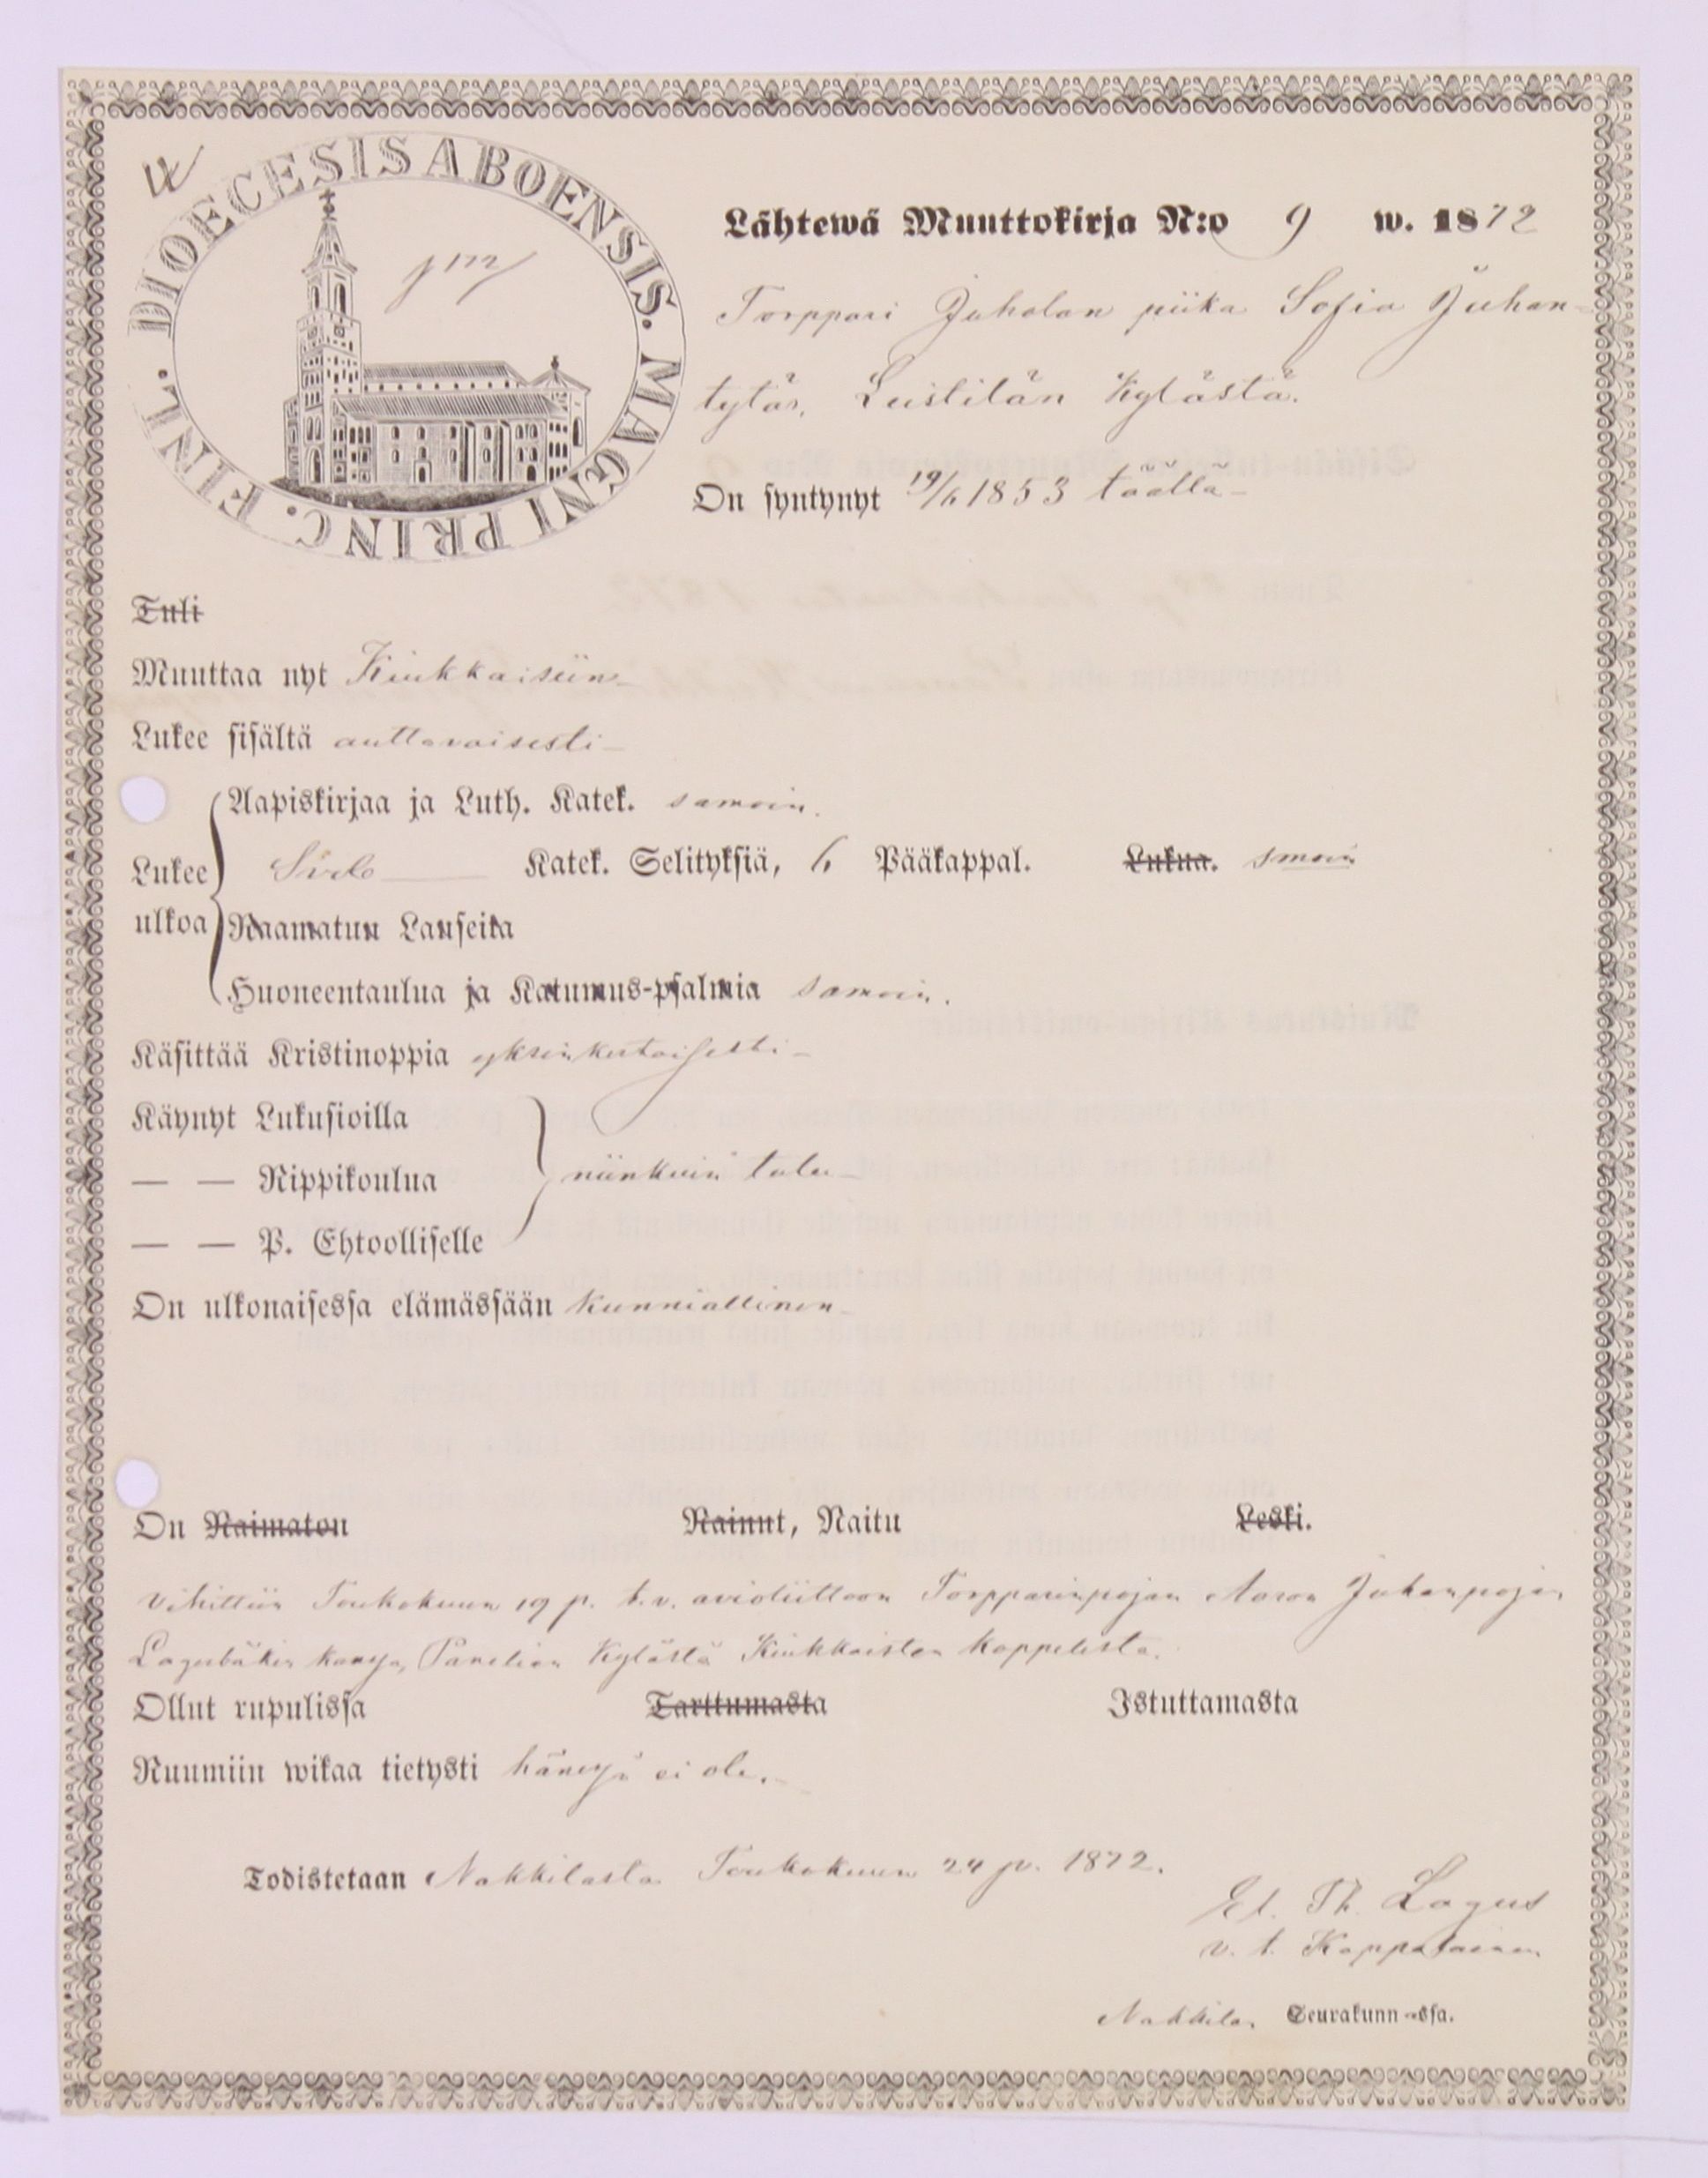 DIOECESIS ABOENSIS. MAGNI PRINC. FINL.
Lähtewä Muuttokirja N:o 9 w. 1872
Torppari Juholan piika Sofia Juhan-
tytär, Leistilän Kylästä.
On syntynyt 19/6 1853 täällä
Tuli
Muuttaa nyt Kiukkaisiin
Lukee sisältä auttavaisesti
Aapiskirjaa ja Luth. Katek. samoin.
Lukee ulkoa Katek. Selityksiä, 6 Pääkappal. Lukua. smoin
Raamatun Lauseita
Huoneentaulua ja Katumus-psalmia samoin.
Käsittää Kristinoppia yksinkertaisesti
Käynyt Lukusioilla
— — Rippikoulua niinkuin tulee
— — P. Ehtoolliselle
On ulkonaisessa elämässään kunniallinen
On Naimaton Nainut, Naitu Leski.
Vihittiin Toukokuun 19 p. t.v. avioliittoon Torpparinpojan Aaron Juhanpojan
Lagerbäkin kanssa, Panelian Kylästä Kiukkaisten kappelista.
Ollut rupulissa Tarttumasta Istuttamasta
Ruumiin wikaa tietysti hänessä ei ole.
Todistetaan Nakkilasta Toukokuun 24 p. 1872.
Th. Lagus
v. t. Kappalainen
Nakkilan Seurakunnassa.